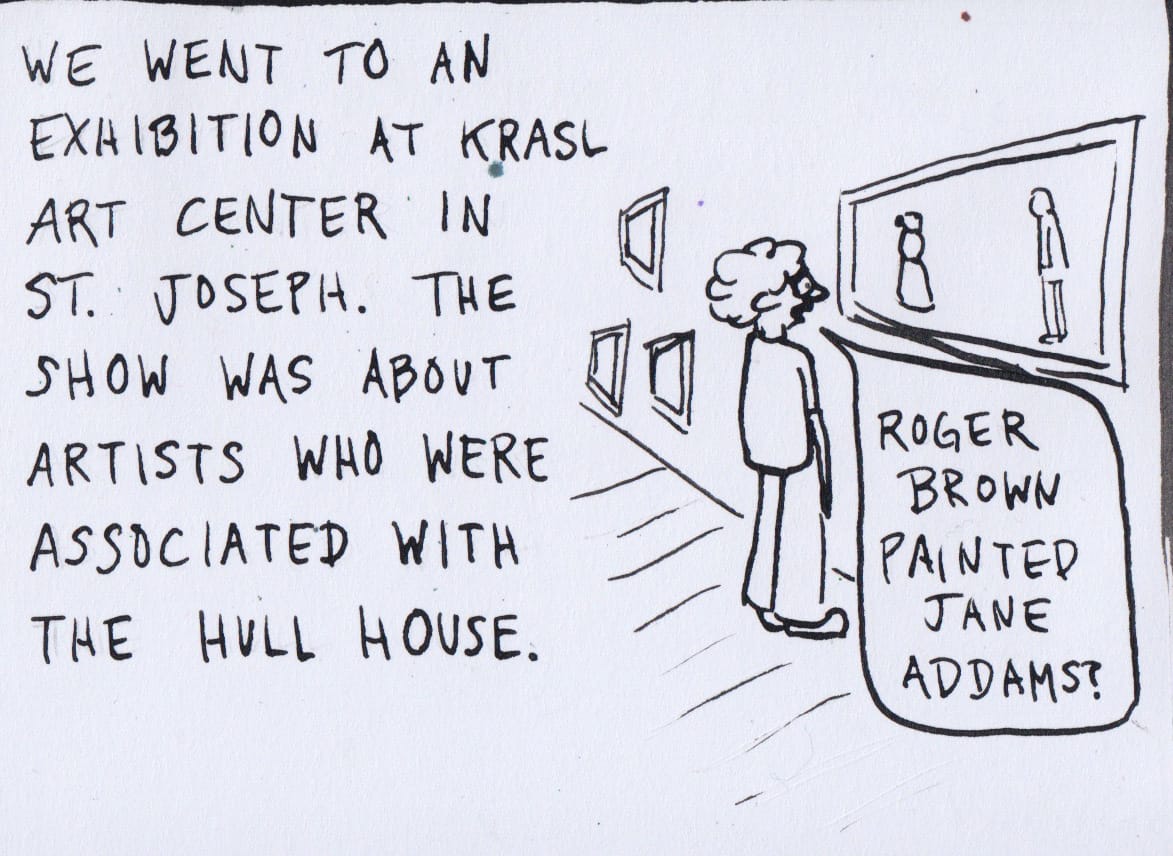 WE WENT TO AN
EXHIBITION AT KRASL
ART CENTER IN
ST. JOSEPH. THE
SHOW WAS ABOUT
ARTISTS WHO WERE
ASSOCIATED WITH
THE HULL HOUSE.
ROGER
BROWN
PAINTED
JANE
ADDAMS?